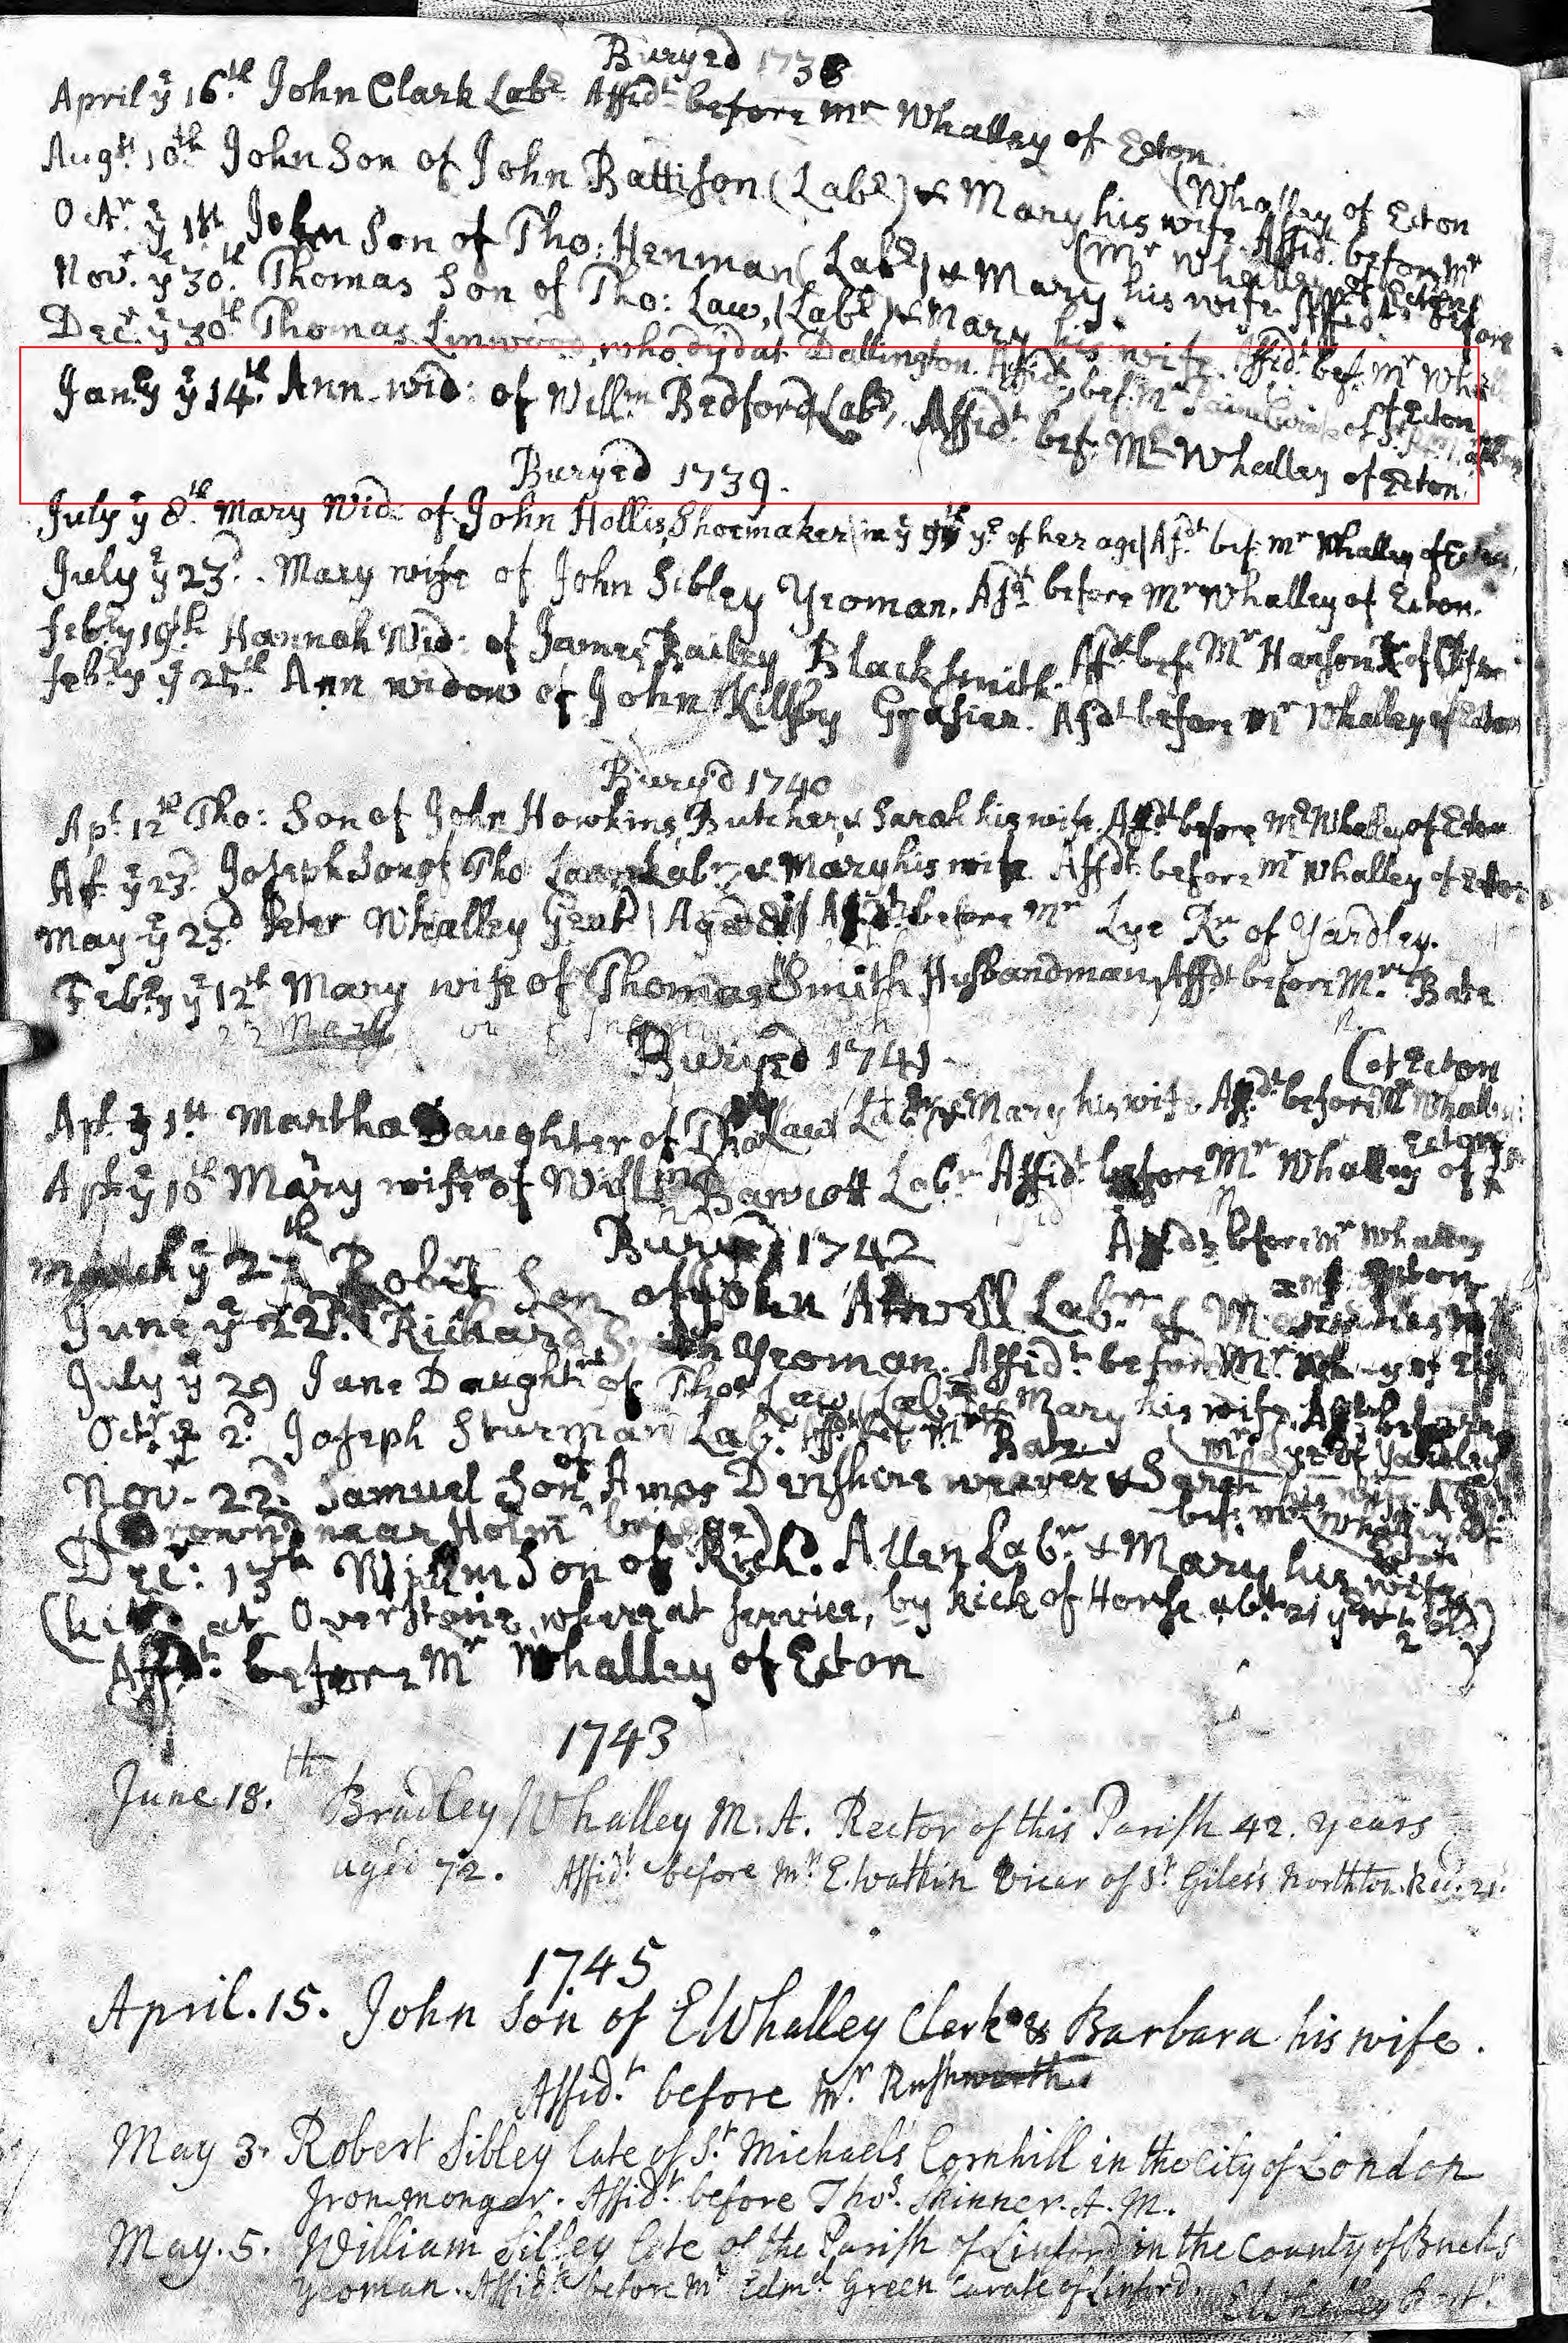 Buryed 1738
April yͤ 16th John Clark Labr Affidt before Mr Whalley of Ecton.
(Whalley of Ecton
Augst 10th John Son of John Battison (Labr) & Mary his wife. Affidt. before Mr
(Mr Whalley of Ecton
Octr yͤ 1st John Son of Tho: Henman (Labr) & Mary his wife Affidt before
Novr. yͤ 30th Thomas Son of Tho: Law, (Labr) & Mary his wife. Affidt. bef. Mr Whall
of Ecton
Decr. yͤ 30th Thomas who dyd at Dallington. Affidt bef. Mr of St.
Janry yͤ 14th. Ann wid: of Willm Bedford Labr, Affidt. bef. Mr Whalley of Ecton.
Buryed 1739.
July yͤ 8th Mary Wid: of John Hollis, Shoemaker (in yͤ yr of her age) Afdt bef. Mr Whalley of
July yͤ 23d. Mary wife of John Sibley Yeoman. Afdt before Mr Whalley of Ecton.
Febry 19th Hannah Wid: of James Bailey Blacksmith. Afdt bef. Mr Hanson of
Febry yͤ 25th Ann widow of John Killsby Grasier. Afdt before Mr Whalley of Ecton
Buryed 1740
Apr. 12th Tho: Son of John Howkins, Butcher & Sarah his wife. Affdt before Mr Whalley of Ecton
Ap. yͤ 23d. Joseph Son of Tho Labr & Mary his wife. Affdt. before Mr Whalley of Ecton
May yͤ 23d. Peter Whalley Gent | Aged | Afdt before Mr Lye Rr of Yardley.
Febry yͤ 12th Mary wife of Thomas Smith Husbandman, Affdt before Mr. Bate
Buryed 1741
(of Ecton
Apr. yͤ 1st Martha Daughter of Tho Law Labr & Mary his wife Afdt before Mr Whalley
Ecton
Apr. yͤ 10th Mary wife of Willm Labr Affidt. before Mr Whalley of
Buryed 1742
Afdt before Mr Whalley
March yͤ 27th Robert Son of John Labr &
June yͤ 22d. Richard Smith Yeoman. Affidt before Mr
July yͤ 29 Jane Daughter of Thos Law, Labr & Mary his wife,
Octr yͤ 2d Joseph Sturman Labr. Affdt bef Mr Bate (Mr Lye of Yardley
Novr. 22d. Samuel Son of Amos Denshire weaver & Sarah his wife.
(Drown'd near Holm bridge) bef: Mr Whalley of
Decr: 13th Willm Son of Richd. Allen Labr & Mary his wife
(kill'd at Overstone, where at service, by kick of Horse, abt 21 yrs old)
Affdt: before Mr Whalley of Ecton
1743
June 18.th Bradley Whalley M. A. Rector of this Parish 42. years
aged 72. Affidt. before Mr. E. Watkin Vicar of St. Giles's Northton. Rec. 21.
1745
April. 15. John Son of E Whalley Clerk & Barbara his wife.
Affid.t before Mr. Rushworth.
May 3. Robert Sibley late of St. Michael's Cornhill in the City of London
Ironmonger. Affidt. before Thos. Skinner. A. M.
May. 5. William Sibley late of the Parish of Linford in the County of Bucks
Yeoman. Affidt before Mr Edmd. Green Curate of Linford.
E Whalley